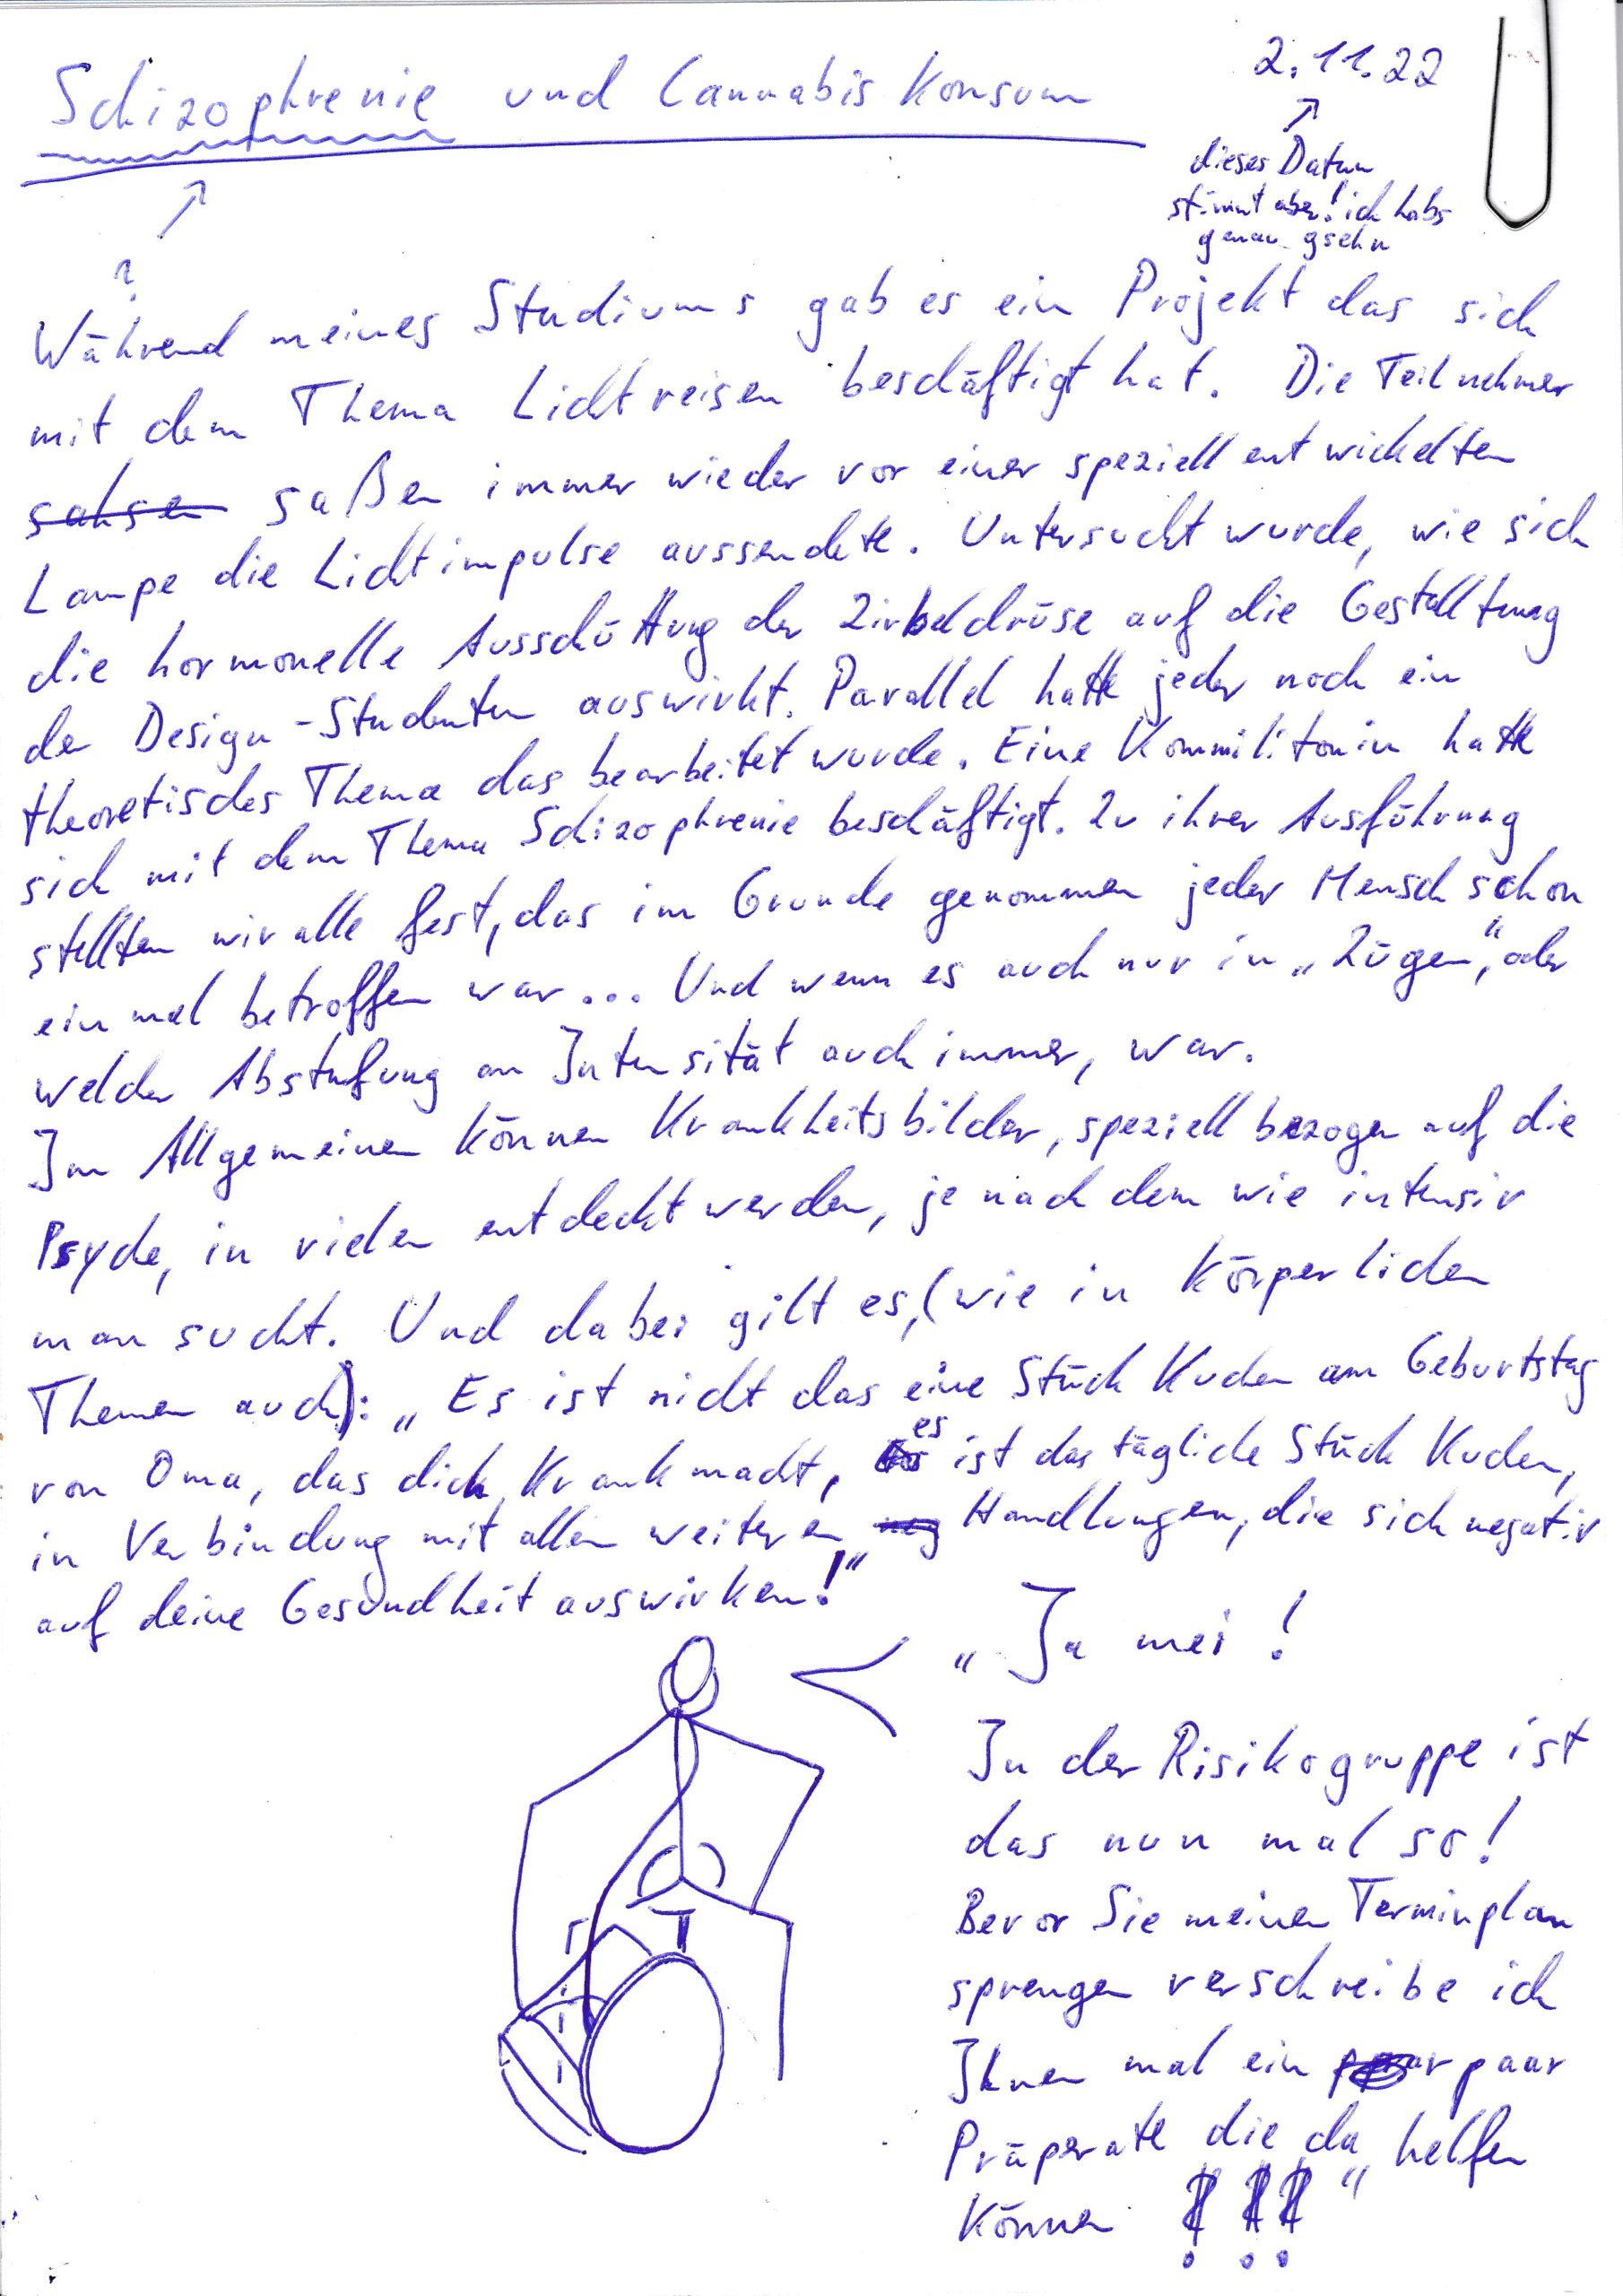 Schizophrenie und Cannabis Konsum
2.11.22
dieses Datum
stimmt aber! ich habs
genau gsehn
?
Während meines Studiums gab es ein Projekt das sich
mit dem Thema Lichtreisen beschäftigt hat. Die Teilnehmer
sahsen saßen immer wieder vor einer speziell entwickelten
Lampe die Lichtimpulse aussendete. Untersucht wurde, wie sich
die hormonelle Ausschüttung der Zirbeldrüse auf die Gestalltung
der Design-Studenten auswirkt. Parallel hatte jeder noch ein
theoretisches Thema das bearbeitet wurde. Eine Kommilitonin hatte
sich mit dem Thema Schizophrenie beschäftigt. Zu ihrer Ausführung
stellten wir alle fest, das im Grunde genommen jeder Mensch schon
ein mal betroffen war... Und wenn es auch nur in „Zügen“, oder
welcher Abstufung an Intensität auch immer, war.
Im Allgemeinen können Krankheitsbilder, speziell bezogen auf die
Psyche, in vielen entdeckt werden, je nach dem wie intensiv
man sucht. Und dabei gilt es, (wie in Körperlichen
Themen auch): „Es ist nicht das eine Stück Kuchen am Geburtstag
von Oma, das dich Krank macht, es ist das tägliche Stück Kuchen,
in Verbindung mit allen weiteren neg Handlungen, die sich negativ
auf deine Gesundheit auswirken!“
„Ja mei!
In der Risikogruppe ist
das nun mal so!
Bevor Sie meinen Terminplan
sprengen verschreibe ich
Ihnen mal ein paar
Präperate die da helfen
Können “